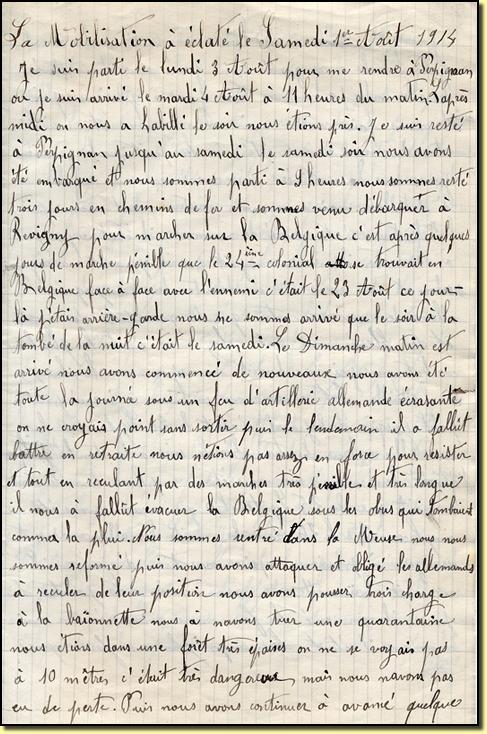 La Mobilisation à éclaté le Samedi 1er Août 1914
Je suis parti le lundi 3 Août pour me rendre à Perpignan
ou je suis arrivé le mardi 4 Août à 11 heures du matin. l'après
midi on nous a habillé le soir nous étions près. Je suis resté
à Perpignan jusqu'au samedi le samedi soir nous avons
été embarqué et nous sommes parti à 9 heures nous sommes resté
trois jours en chemins de fer et sommes venu débarquer à
Revigny pour marcher sur la Belgique c'est après quelques
jours de marche pénible que le 24ième colonial se trouvait en
Belgique face à face avec l'ennemi c'était le 23 Août ce jour-
là j'étais arrière-garde nous ne sommes arrivé que le soir à la
tombé de la nuit c'était le samedi. Le Dimanche matin est
arrivé nous avons commencé de nouveaux nous avons été
toute la journá sous un feu d'artillerie allemande écrasante
on ne croyais point sans sortir puis le lendemain il a fallût
battre en retraite nous n'étions pas assez en force pour résister
et tout en reculant par des marches très pénible et très longue
il nous à fallût évacuer la Belgique sous les obus qui tombaient
comme la plui. Nous sommes rentré dans la Meuse nous nous
sommes reformé puis nous avons attaquer et obligé les allemands
à reculer de leur position nous avons pousser trois charge
à la baïonnette nous à navons tuer une quarantaine
nous étions dans une forêt très épaises on ne se voyais pas
à 10 mètres c'était très dangereux mais nous navons pas
eu de perte. Puis nous avons continuer à avancé quelque